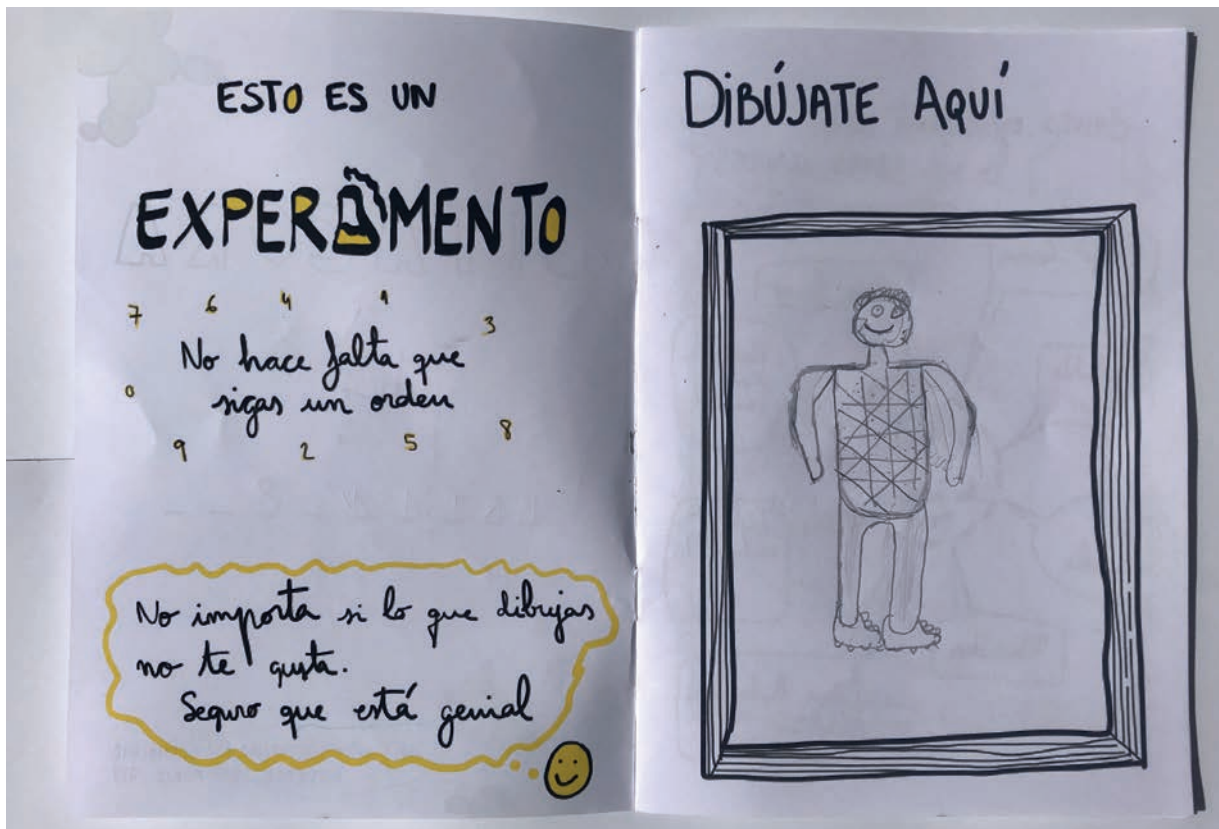 ESTO ES UN
EXPERIMENTO
7 6 4 1 3
No hace falta que
sigas un orden
0 9 2 5 8
No importa si lo que dibujas
no te gusta.
Seguro que está genial
DIBÚJATE AQUÍ